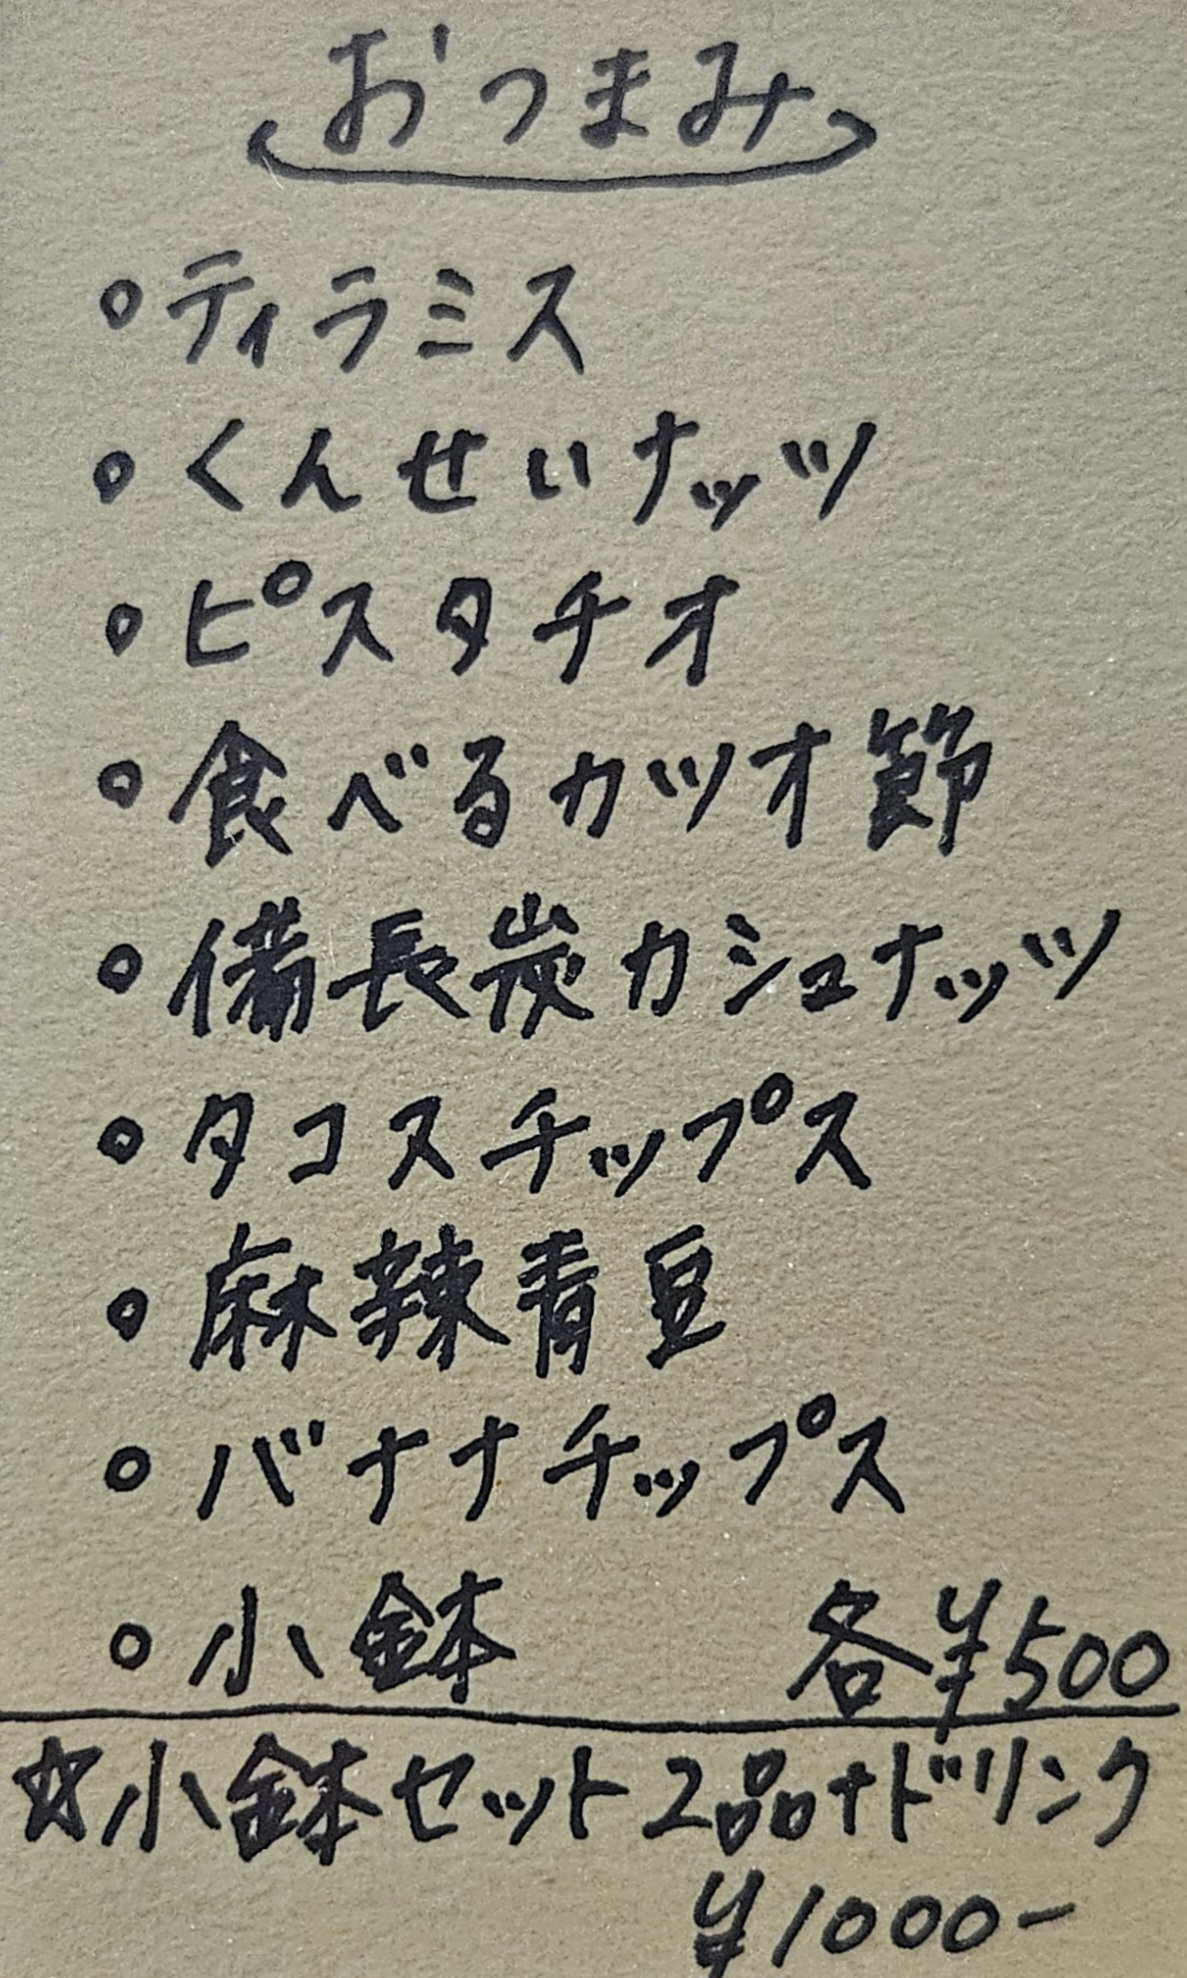 おつまみ
○ティラミス
○くんせいナッツ
○ピスタチオ
○食べるカツオ節
○備長炭カシュナッツ
○タコスチップス
○麻辣青豆
○バナナチップス
○小鉢 各¥500
☆小鉢セット2品+ドリンク
¥1000-